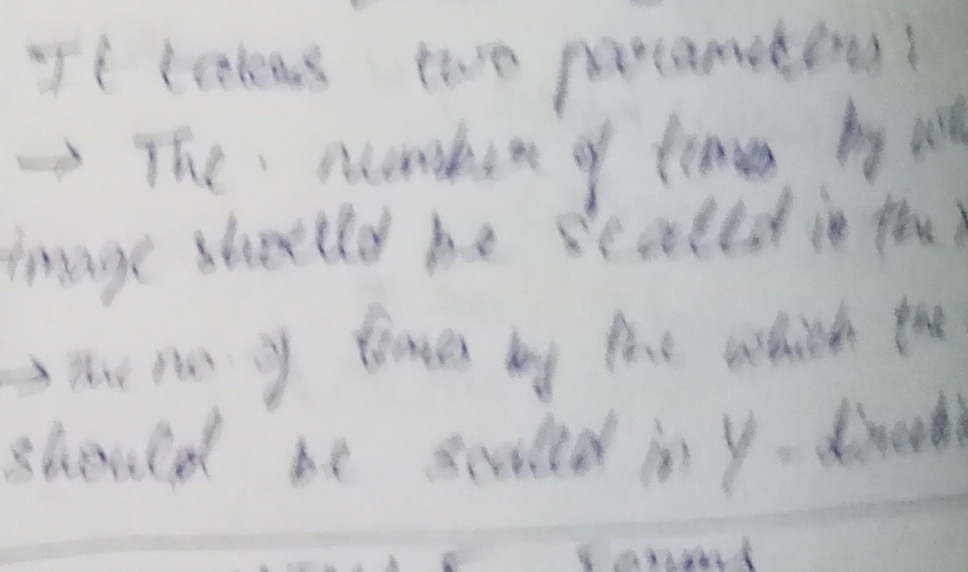 It takes two parameters:
→ The number of times by
image should be scalled in the
→ The no. of times by the which the
should be scalled in Y-